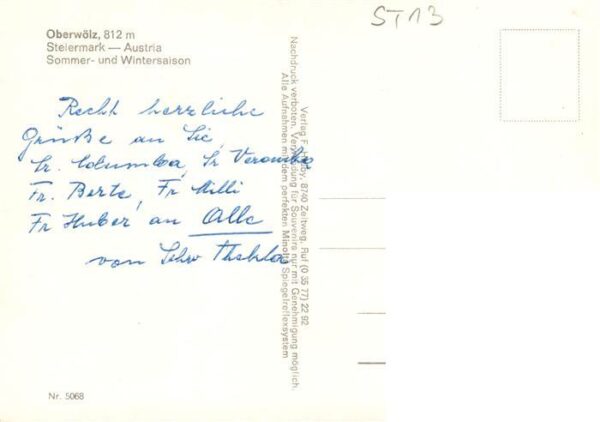 ST13
Oberwölz, 812 m
Steiermark — Austria
Sommer- und Wintersaison
Recht herzliche
Grüße an Sie,
Sr. Columba, Sr Veronika
Fr. Berta, Fr Milli
Fr Huber an Alle
von Schw Thekla
Verlag F. 8740 Zeltweg. Ruf (0 35 77) 22 92
Nachdruck verboten. Verwendung für Souvenirs nur mit Genehmigung möglich.
Alle Aufnahmen mit dem perfekten Minolta Spiegelreflexsystem
Nr. 5068